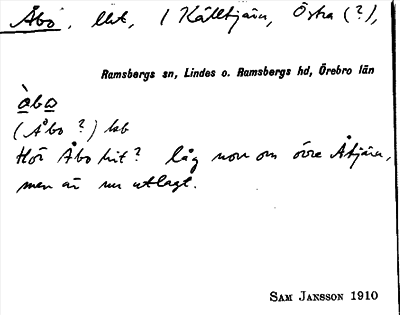 Åbo, lht, / Källtjärn, Östra (?),
Ramsbergs sn, Lindes o. Ramsbergs hd, Örebro län
àbo
(Åbo ?) lsb
Hör Åbo hit? låg norr om övre Åtjärn,
men är nu utlagt.
SAM JANSSON 1910